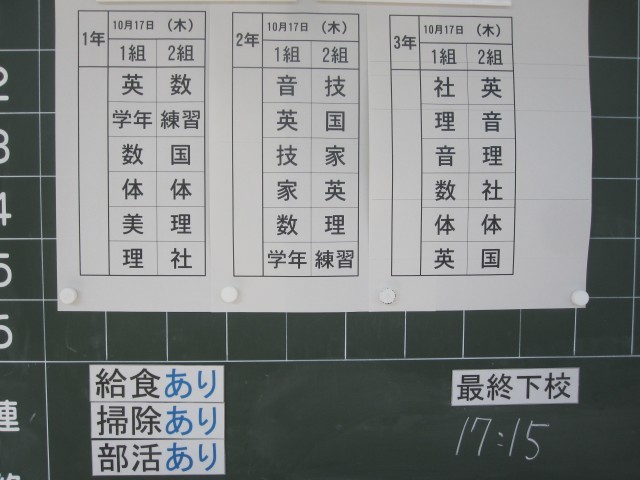 1年 10月17日 （木）
1組 2組
英 数
学年 練習
数 国
体 体
美 理
理 社
2年 10月17日 （木）
1組 2組
音 技
英 国
技 家
家 英
数 理
学年 練習
3年 10月17日 （木）
1組 2組
社 英
理 音
音 理
数 社
体 体
英 国
2
3
4
5
6
連
給食あり
掃除あり
部活あり
最終下校
17:15